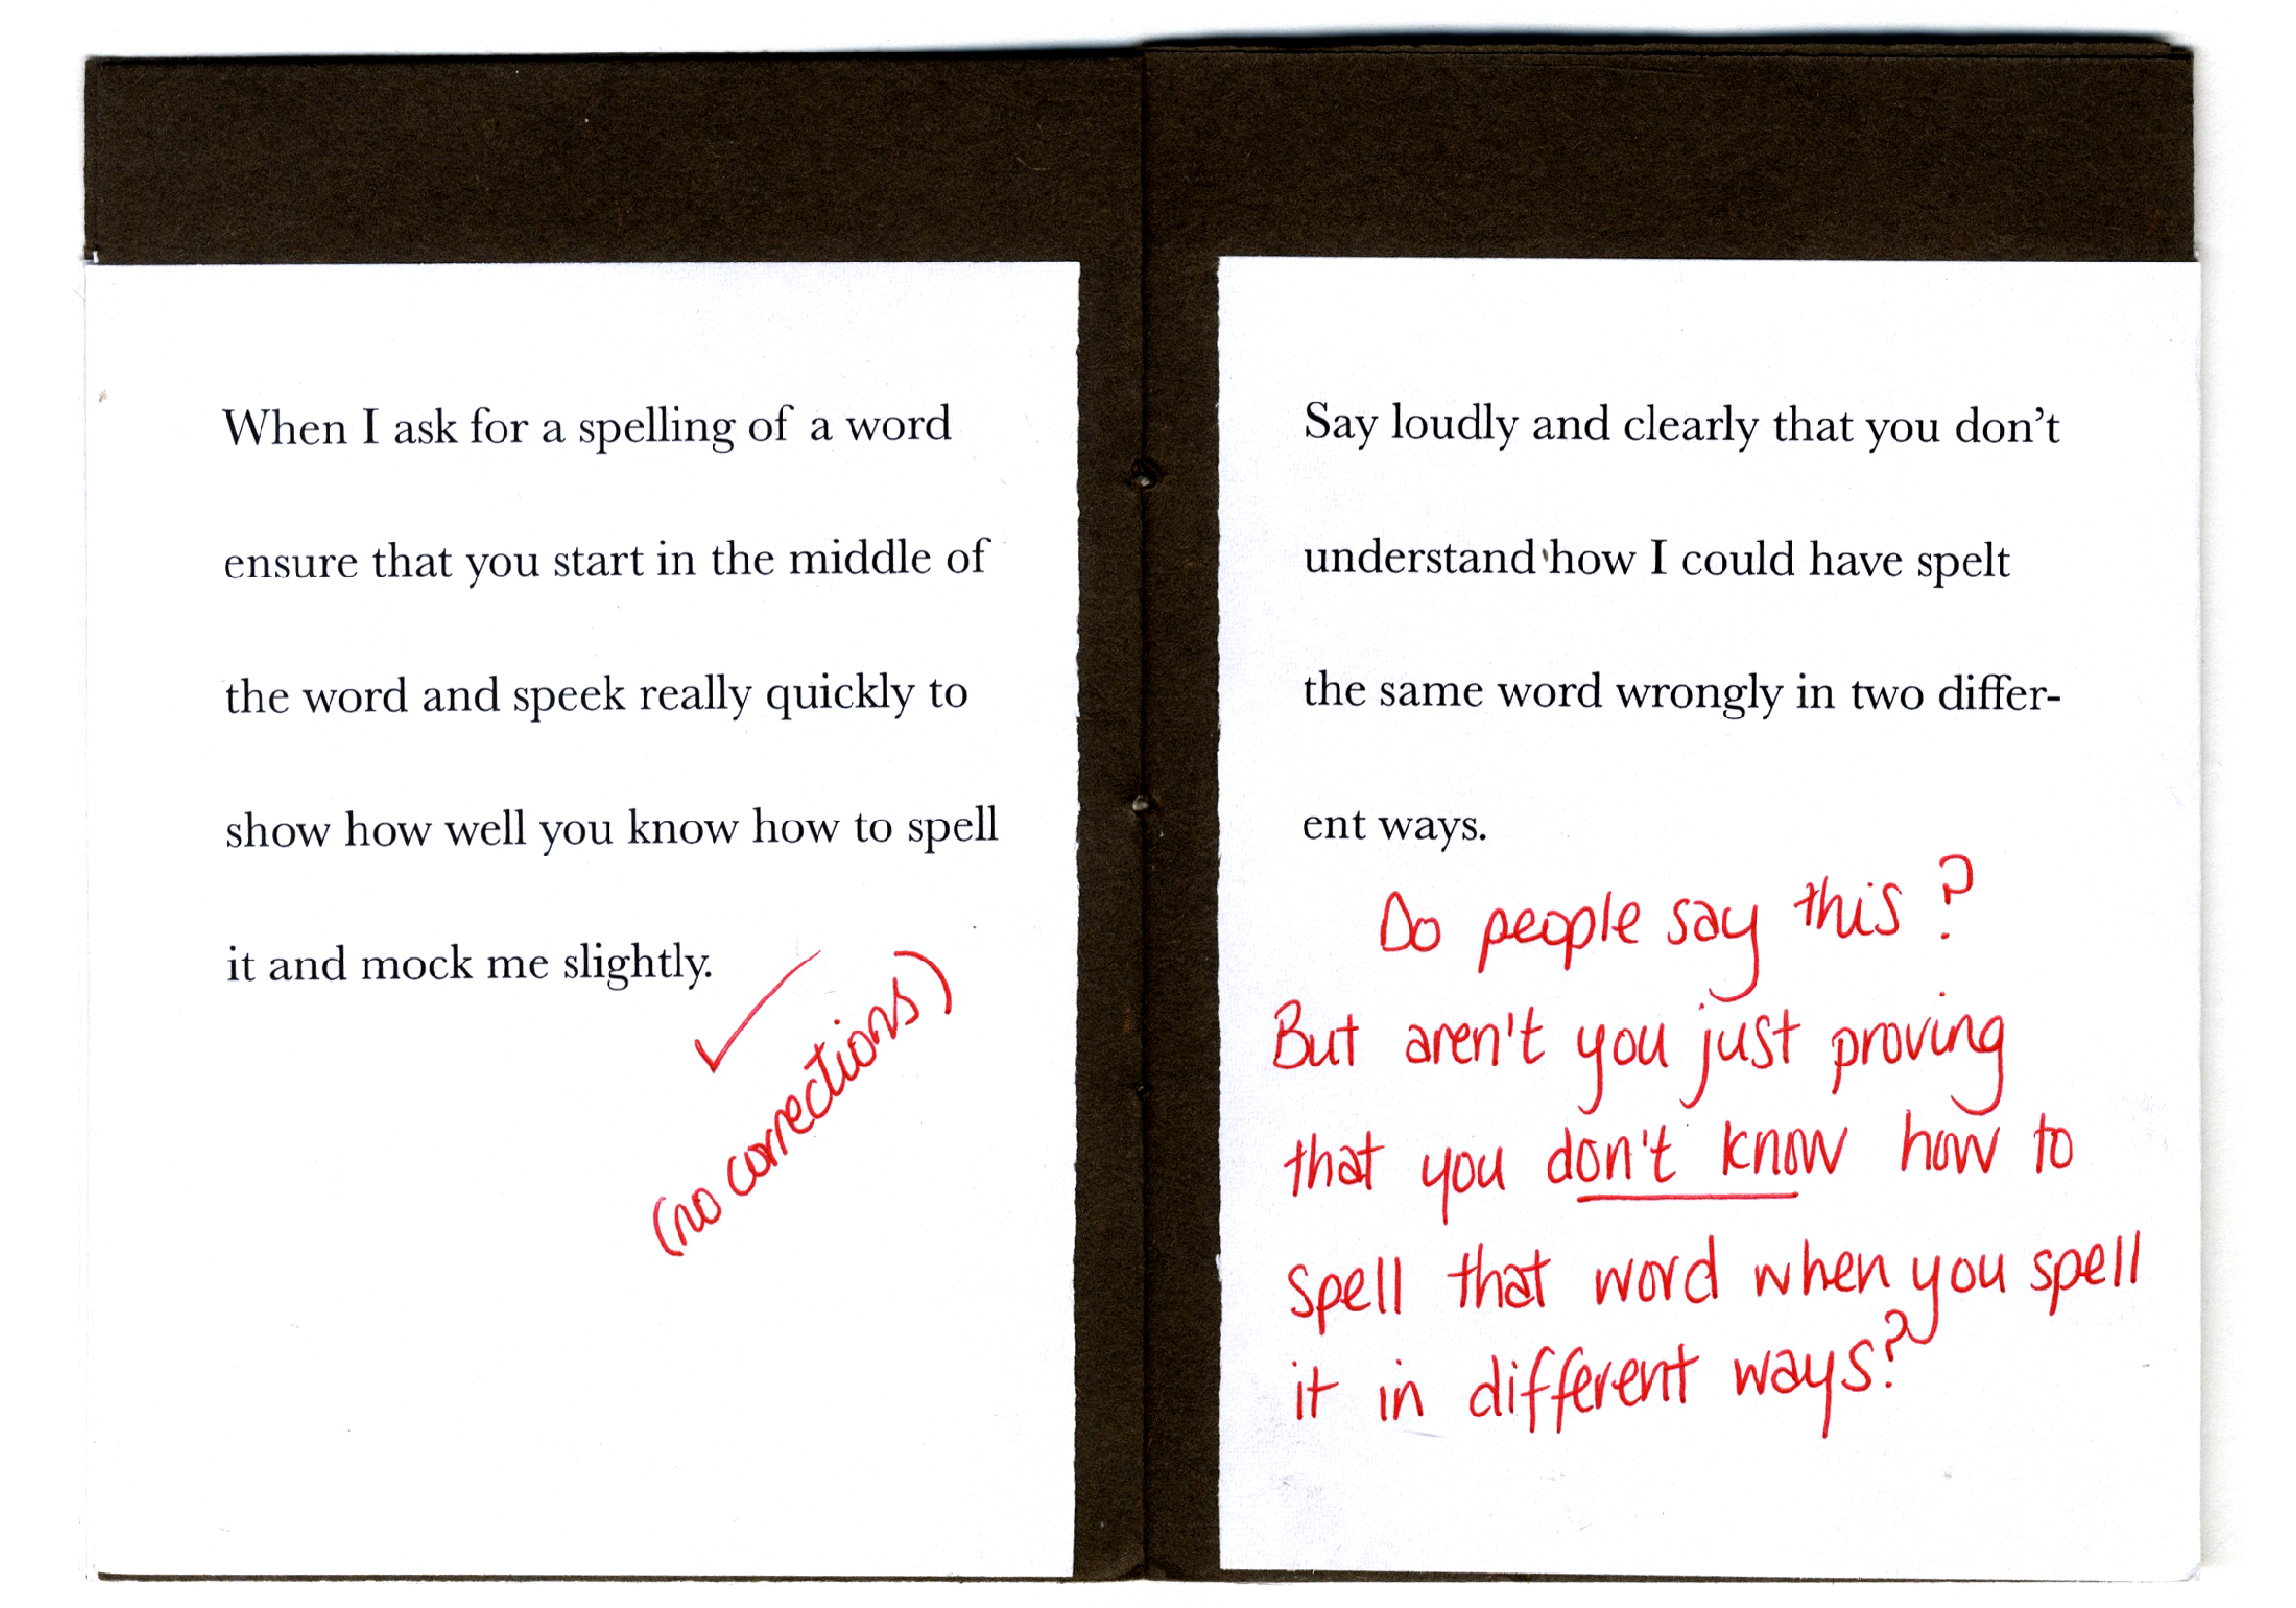 When I ask for a spelling of a word
ensure that you start in the middle of
the word and speek really quickly to
show how well you know how to spell
it and mock me slightly.
(no corrections)
Say loudly and clearly that you don't
understand how I could have spelt
the same word wrongly in two differ-
ent ways.
Do people say this?
But aren't you just proving
that you don't know how to
spell that word when you spell
it in different ways?